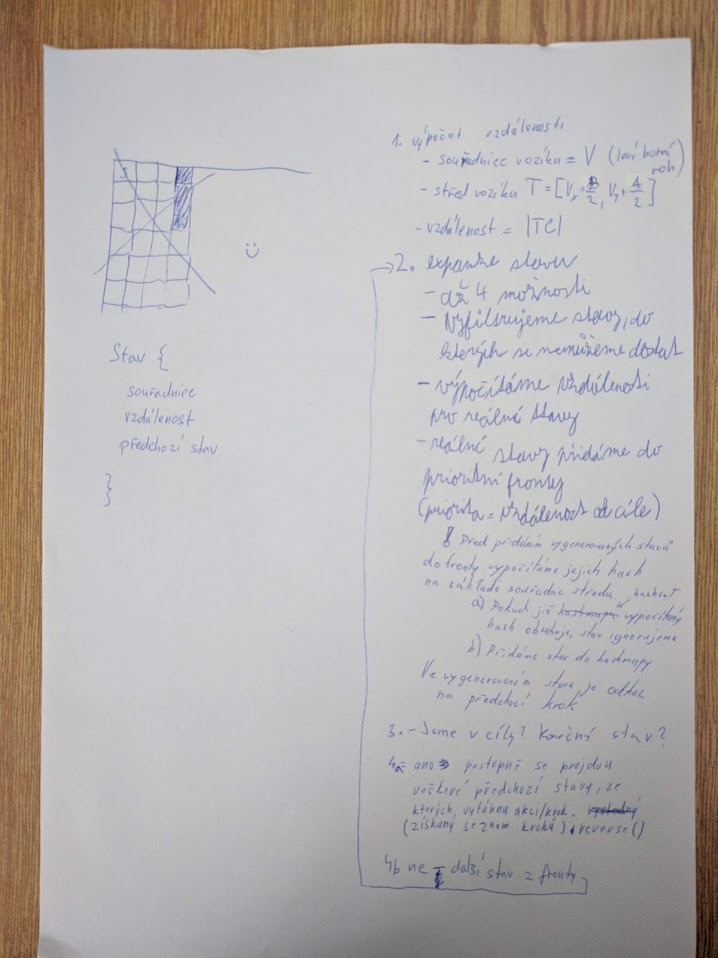 Stav {
souřadnice
vzdálenost
předchozí stav
}
1. výpočet vzdálenosti
- souřadnice vozíku = V (levý horní roh)
- střed vozíku T = [Vx + B/2, Vy + A/2]
- vzdálenost = |TC|
2. expanze stavu
- až 4 možnosti
- Vyfiltrujeme stavy, do
kterých se nemůžeme dostat
- výpočítáme vzdálenosti
pro reálné stavy
- reálné stavy přidáme do
prioritní fronty
(priorita = vzdálenost od cíle)
! Před přidáním vygenerovaných stavů
do fronty vypočítáme jejich hash
na základě souřadnic středu
a) Pokud již hashmapa vypočítaný
hash obsahuje, stav ignorujeme
b) Přidáme stav do hashmapy
Ve vygenerovaném stavu je odkaz
na předchozí krok
3. - Jsme v cíly? Koneční stav?
4a ano postupně se projdou
veškeré předchozí stavy, ze
kterých, vytáhnu akci/krok.
(získaný seznam kroků).reverse()
4b ne - další stav z fronty